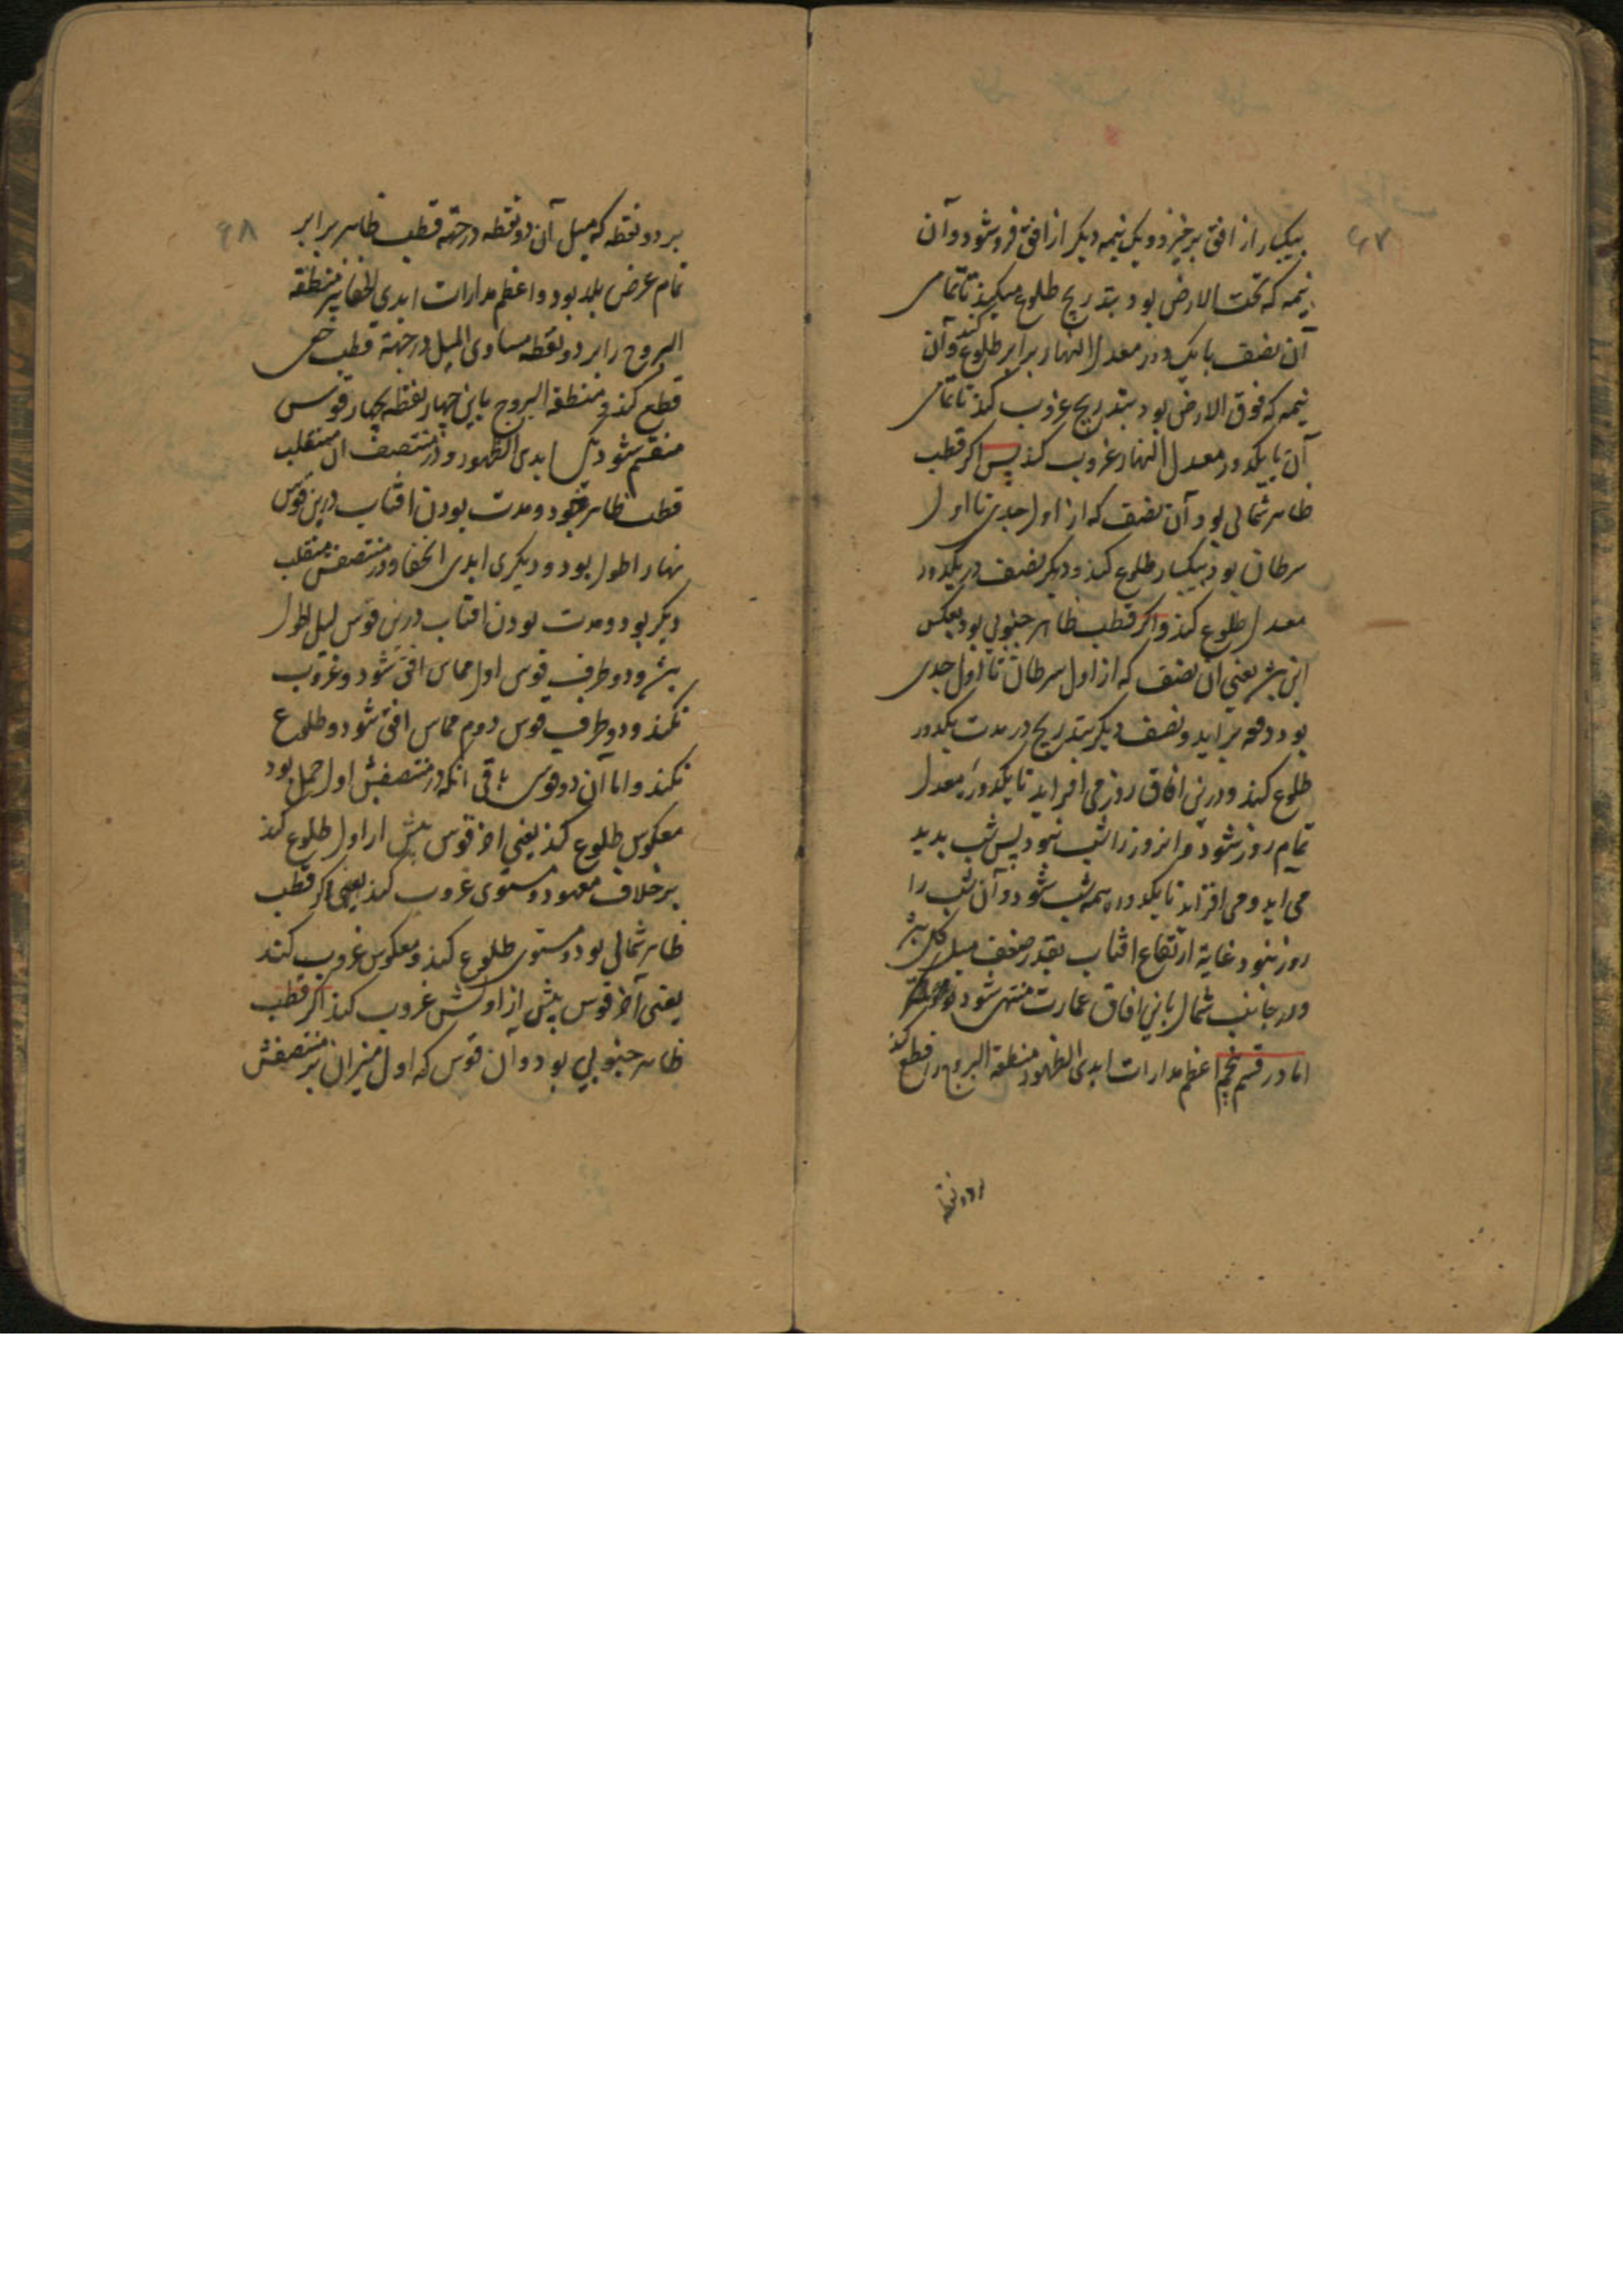 ۶۷
بیکبار از افق برخیزد و یک نیمه دیکر از افق فرو شود و آن
نیمه که تحت الارض بود بتدریج طلوع میکند تا تمامی
آن نصف با یک دور معدل النهار برابر طلوع کند و آن
نیمه که فوق الارض بود بتدریج غروب کند تا تمامی
آن با یکدور معدل النهار غروب کند پس اکر قطب
ظاهر شمالی بود آن نصف که از اول جدی تا اول
سرطان بود بیکبار طلوع کند و دیکر نصف در یکدور
معدل طلوع کند و اکر قطب ظاهر جنوبی بود بعکس
این باشد یعنی آن نصف که از اول سرطان تا اول جدی
بود دفعه براید و نصف دیکر بتدریج در مدت یکدور
طلوع کند و درین افاق روز می افزاید تا یکدور معدل
تمام روز شود و آنروز را شب نبود پس شب پدید
می اید و می افزاید تا یکدور همه شب شود و آن شب را
روز نبود و غایة ارتفاع افتاب بقدر ضعف میل کلی باشد
و در جانب شمال باین افاق عمارت منتهی شود
اما در قسم پنجم اعظم مدارات ابدی الظهور منطقة البروج را قطع کند
بر دو نقطه
۶۸
بر دو نقطه که میل آن دو نقطه در جهة قطب ظاهر برابر
تمام عرض بلد بود و اعظم مدارات ابدی الخفا نیز منطقه
البروج را بر دو نقطه مساوی المیل در جهة قطب خفی
قطع کند و منطقة البروج باین چهار نقطه بچهار قوس
منقسم شود یکی ابدی الظهور و در منتصف آن منقلب
قطب ظاهر بود و مدت بودن افتاب درین قوس
نهار اطول بود و دیکری ابدی الخفا و در منتصفش منقلب
دیکر بود و مدت بودن افتاب درین قوس لیل اطول
باشد و دو طرف قوس اول مماس افق شود و غروب
نکند و دو طرف قوس دوم مماس افق شود و طلوع
نکند و اما آن دو قوس باقی آنکه در منتصفش اول حمل بود
معکوس طلوع کند یعنی آخر قوس پیش از اول طلوع کند
بر خلاف معهود و مستوی غروب کند یعنی اکر قطب
ظاهر شمالی بود و مستوی طلوع کند و معکوس غروب کند
یعنی آخر قوس پیش از اولش غروب کند اکر قطب
ظاهر جنوبی بود و آن قوس که اول میزان بر منتصفش